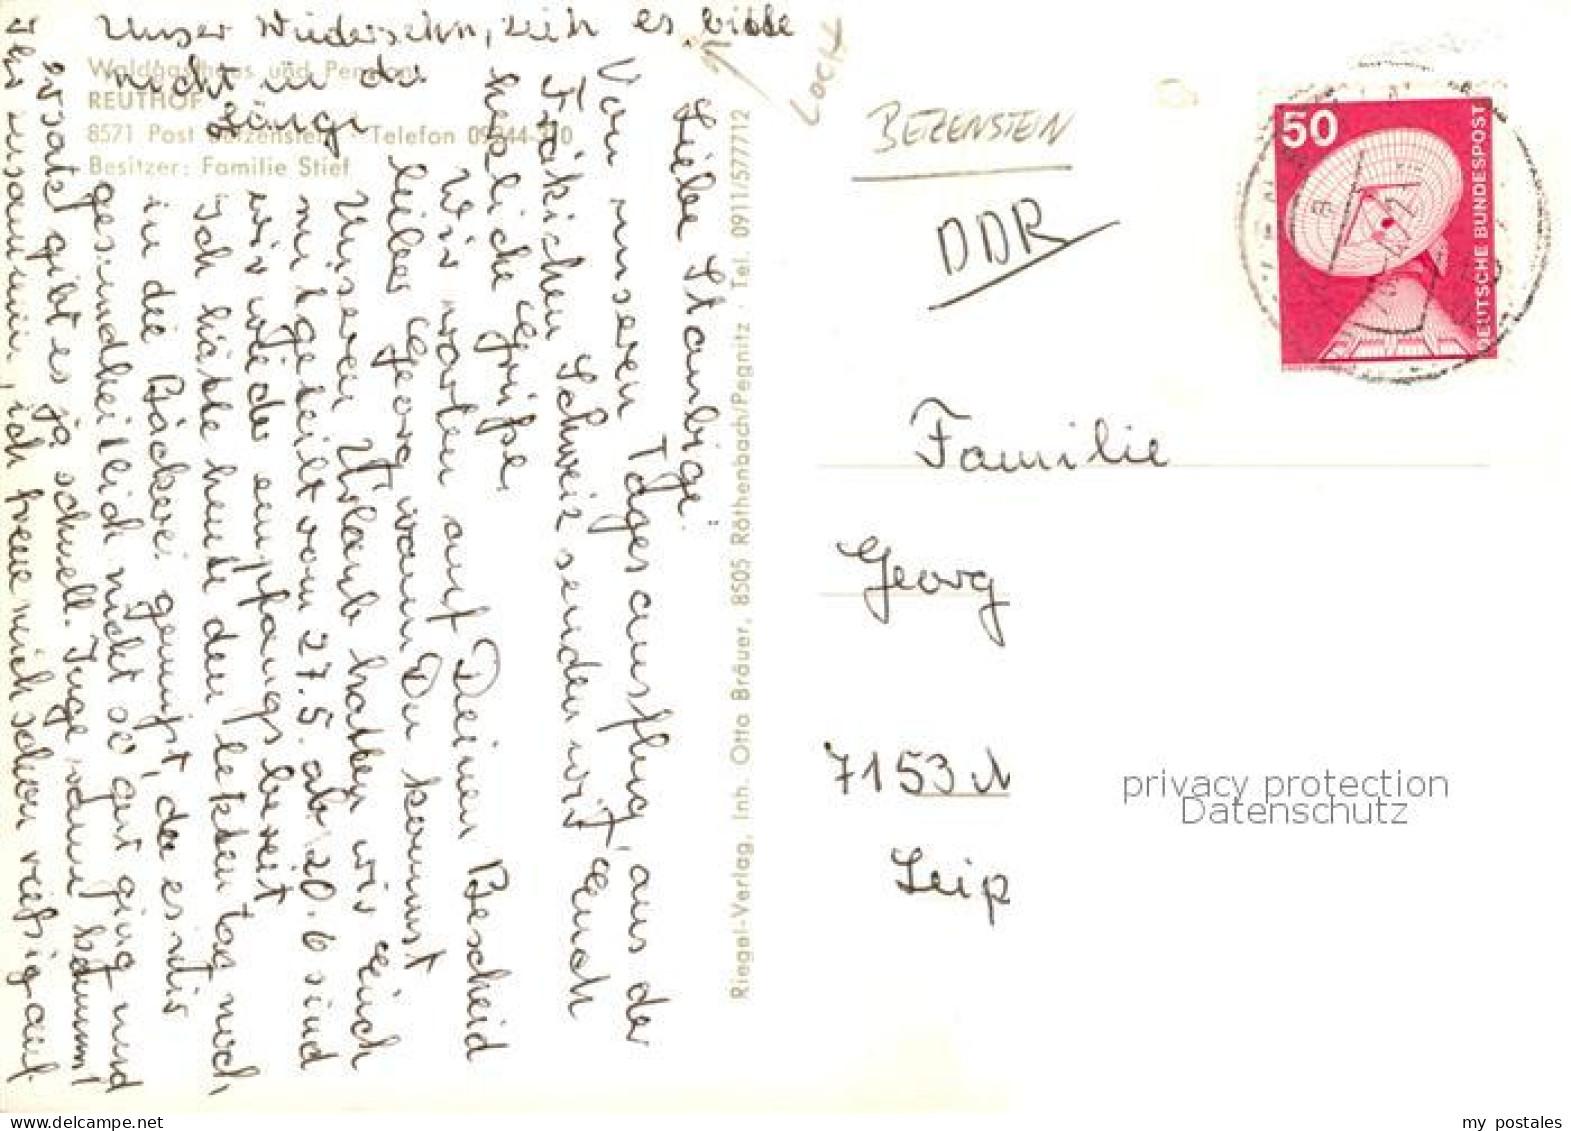 Waldgasthaus und Pension
REUTHOF
8571 Post Betzenstein · Telefon 09244-310
Besitzer: Familie Stief
Liebe Stanbigi.
Von unseren Tagesausflug, aus der
Fräkischen Schweiz senden wir Euch
herzliche Grüße.
Wir warten auf Deinen Bescheid
lieber Georg, wann Du kommst
Unseren Urlaub hatten wir Euch
mitgeteilt vom 27.5. ab 20.6 sind
wir wieder empfangsbereit
Ich hätte heute den letzten Tag noch
in die Bäckerei gemußt, da es mir
gesundheitlich nicht so gut ging und
ersatz gibt es ja schnell. Inge wann kommt
Ihr zusammen, ich freue mich schon riesig auf
Unser Wiedersehn, zieh es bitte
nicht in die
Länge
Riegel-Verlag, Inh. Otto Bräuer, 8505 Röthenbach/Pegnitz · Tel. 0911/577712
LOCH
BETZENSTEIN
DDR
50
DEUTSCHE BUNDESPOST
Familie
Georg
7153 M
Leip
privacy protection
Datenschutz
my postales